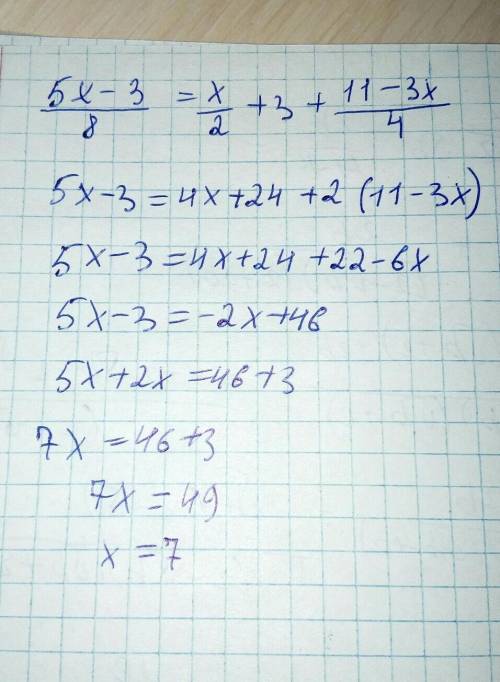 (5x-3)/8 = x/2 + 3 + (11-3x)/4
5x-3=4x+24+2(11-3x)
5x-3=4x+24+22-6x
5x-3=-2x+46
5x+2x=46+3
7x=46+3
7x=49
x=7